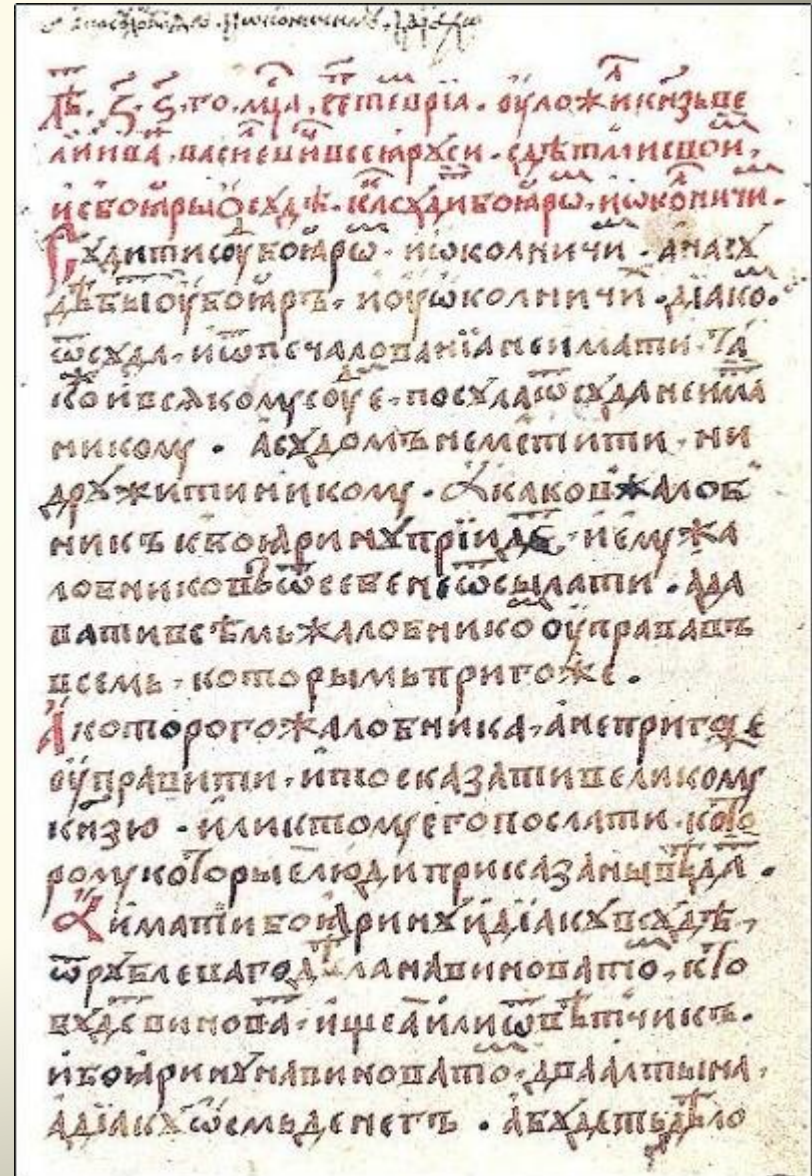 лѣ҇т. ҂ꙅ. ꙅ. го. мⷭца, септеврїа. оуложиⷧ кнѧзь ве
ликиⷨ иваⷩ васиⷧевиⷱ всеꙗ руси. с дѣтми свои,
и с боꙗры ѡ судѣ. каⷦ судити боꙗро. и ѡкоⷧничи.
Судити суⷣ боꙗро. и ѡколничи. а на су
дѣ быти оу боꙗръ. и оу ѡколничи. дїако.
ѿ суда. и ѿ печалованїа не имати. та
коⷤ и всѧкому соуⷣе. посула ѿ суда не има
никому. а судомъ не мстити. ни
дружити никому. а каковъ жалоб
никъ к боꙗрину прїидеⷮ. и ему жа
лобниковъ ѿ себе не ѿсылати. а да
вати всѣмь жалобнико оуправа въ
всемь. которымь пригоже.
А которого жалобника. а не пригоже
оуправити. и то сказати великому
кнѧзю. или к тому его послати. кото
рому которые люди приказаны вѣдаⷮ.
А имати боꙗрину и дїаку в судѣ,
ѿ рублеваго дѣла на виноватоⷨ. кто
будеⷮ виноваⷮ. ищеа или ѿвѣтчикъ.
и боꙗрину на виноватоⷨ. два алтына.
а дїаку ѡсмь денегъ. а будеть дѣло